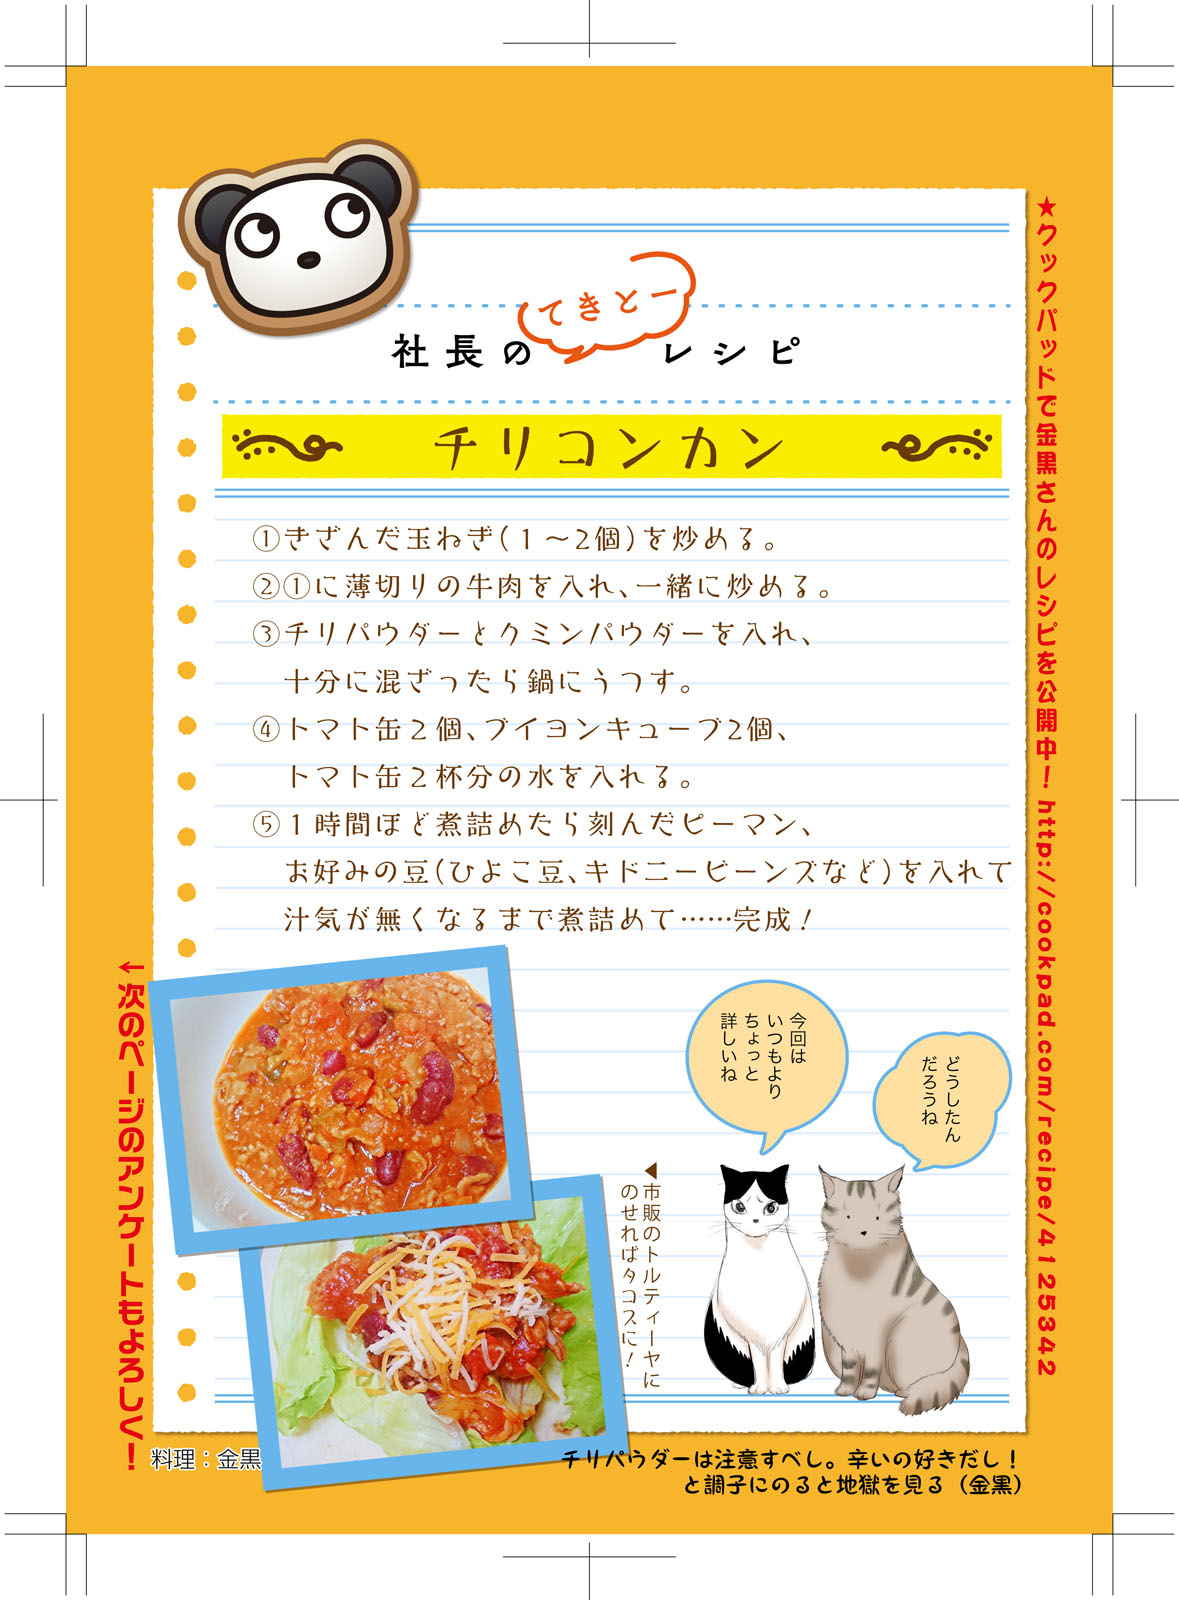 社長のてきとーレシピ
チリコンカン
①きざんだ玉ねぎ(1〜2個)を炒める。
②①に薄切りの牛肉を入れ、一緒に炒める。
③チリパウダーとクミンパウダーを入れ、
十分に混ざったら鍋にうつす。
④トマト缶2個、ブイヨンキューブ2個、
トマト缶2杯分の水を入れる。
⑤1時間ほど煮詰めたら刻んだピーマン、
お好みの豆(ひよこ豆、キドニービーンズなど)を入れて
汁気が無くなるまで煮詰めて……完成！
★クックパッドで金黒さんのレシピを公開中！http://cookpad.com/recipe/4125342
今回は
いつもより
ちょっと
詳しいね
どうしたん
だろうね
▲市販のトルティーヤに
のせればタコスに！
←次のページのアンケートもよろしく！
料理：金黒
チリパウダーは注意すべし。辛いの好きだし！
と調子にのると地獄を見る（金黒）